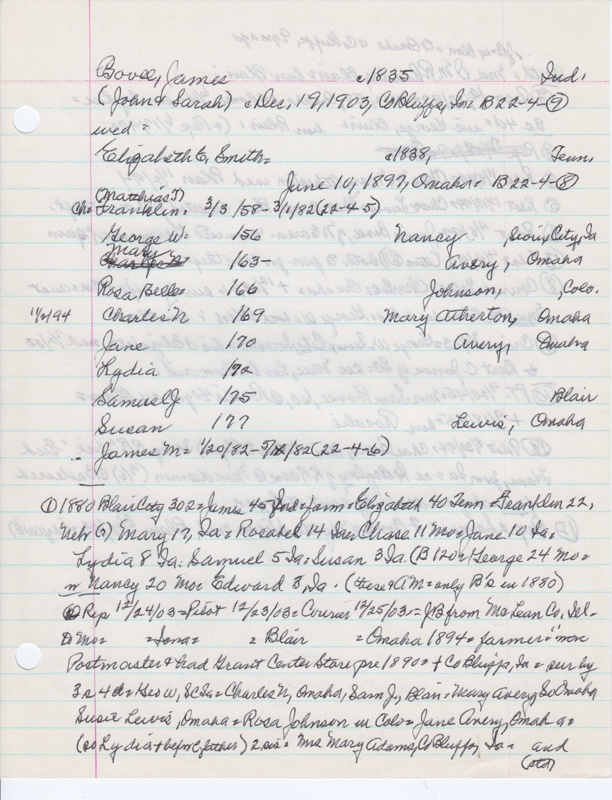 Bovee, James c1835 Ind.
(John & Sarah) d Dec. 19, 1903, Co Bluffs, Ia. B22-4-⑨
wed =
Elizabeth C. Smith = c1838, Tenn.
June 10, 1897, Omaha = B22-4-⑧
(Matthias F)
Ch = Franklin = 3/3/58 - 3/1/82 (22-4-5)
George W = /56 Nancy Sioux City, Ia
Mary /63- Avery, Omaha
Rosa Belle = /66 Johnson, , Colo.
11/2/94 Charles N /69 Mary Atherton, Omaha
Jane /70 Avery, Omaha
Lydia /72
Samuel J /75 Blair
Susan /77 Lewis, Omaha
James M = 1/20/82 - 5/12/82 (22-4-6)
① 1880 Blair City 302 = James 45 Ind = farm = Elizabeth 40 Tenn = Franklin 22,
Nebr (?) Mary 17, Ia = Rosabel 14 Ia = Chase 11 Mo = Jane 10 Ia =
Lydia 8 Ia = Samuel 5 Ia = Susan 3 Ia. (B 120 = George 24 Mo =
m Nancy 20 Mo = Edward 3, Ia = (these & AM = only B's in 1880)
Rep 12/24/03 = Pilot 12/23/03 = Courier 12/25/03 = JB from McLean Co, Ill -
to Mo = = Iowa = = Blair = Omaha 1894 = farmer = once
Postmaster & had Grant Center Store pre 1890 = + Co Bluffs, Ia = sur by
3 s 4 d = Geo W, SC Ia = Charles N, Omaha, Sam J, Blair = Mary Avery, So Omaha
Susie Lewis, Omaha = Rosa Johnson in Colo = Jane Avery, Omaha =
(so Lydia + before father) 2 sis = Mrs Mary Adams, Co Bluffs, Ia = and